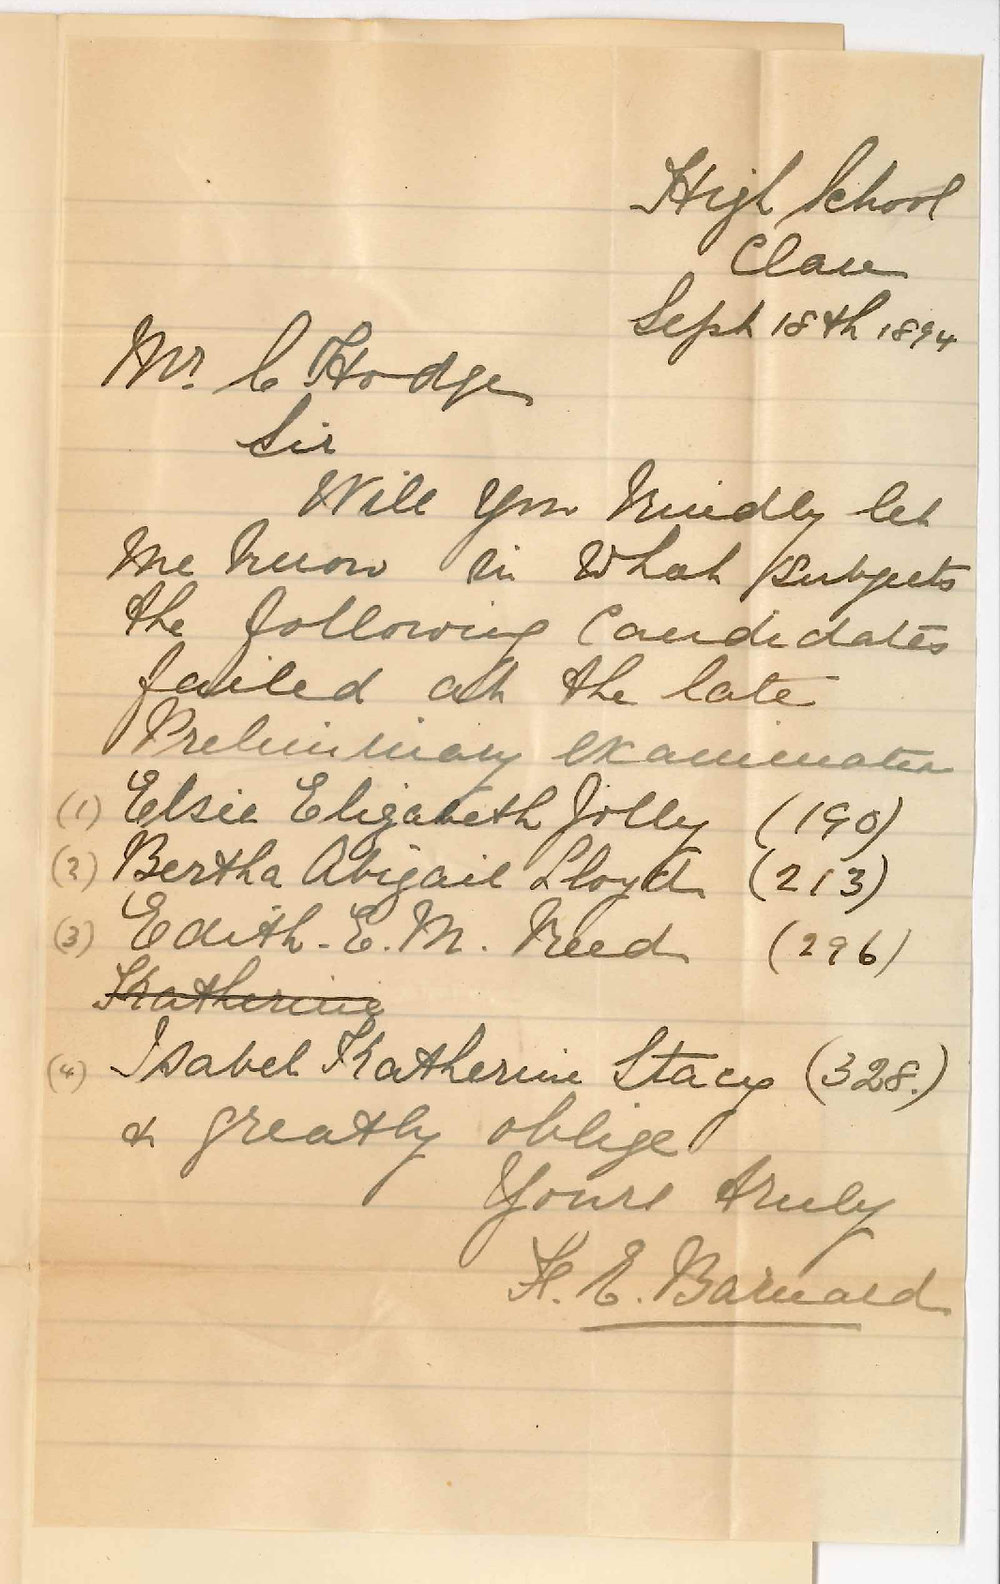 High School
Clare
Sept 18th 1894
Mr. C Hodge
Sir
Will you kindly let
me know in what subjects
the following Candidates
failed at the late
Preliminary examination
(1) Elsie Elizabeth Jolly (190)
(2) Bertha Abigail Lloyd (213)
(3) Edith. E. M. Reed (296)
Katherine
(4) Isabel Katherine Stacy (328.)
& greatly oblige
Yours truly
H. E. Barnard